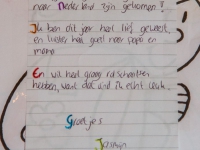 naar Nederland zijn gekomen?
Ik ben dit jaar heel lief geweest,
en luister heel goed naar papa en
mama
En wil heel graag rolschaatsen
hebben, want dat vind ik echt leuk.
Groetjes